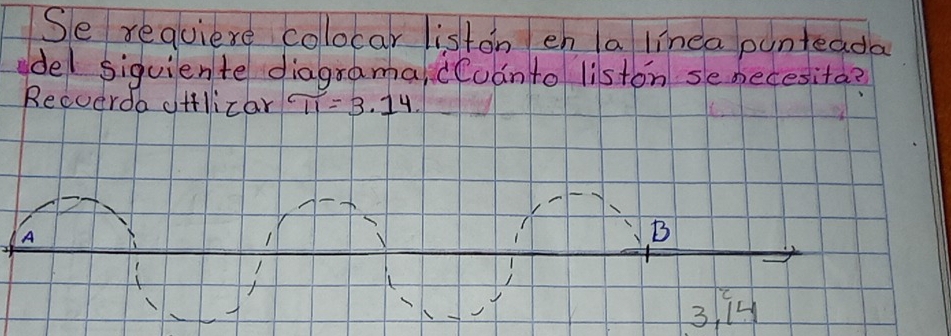 Se requiere colocar listón en la línea punteada
del siguiente diagrama, ¿Cuánto listón se necesita?
Recuerda utilizar π = 3.14.
A
B
3,14